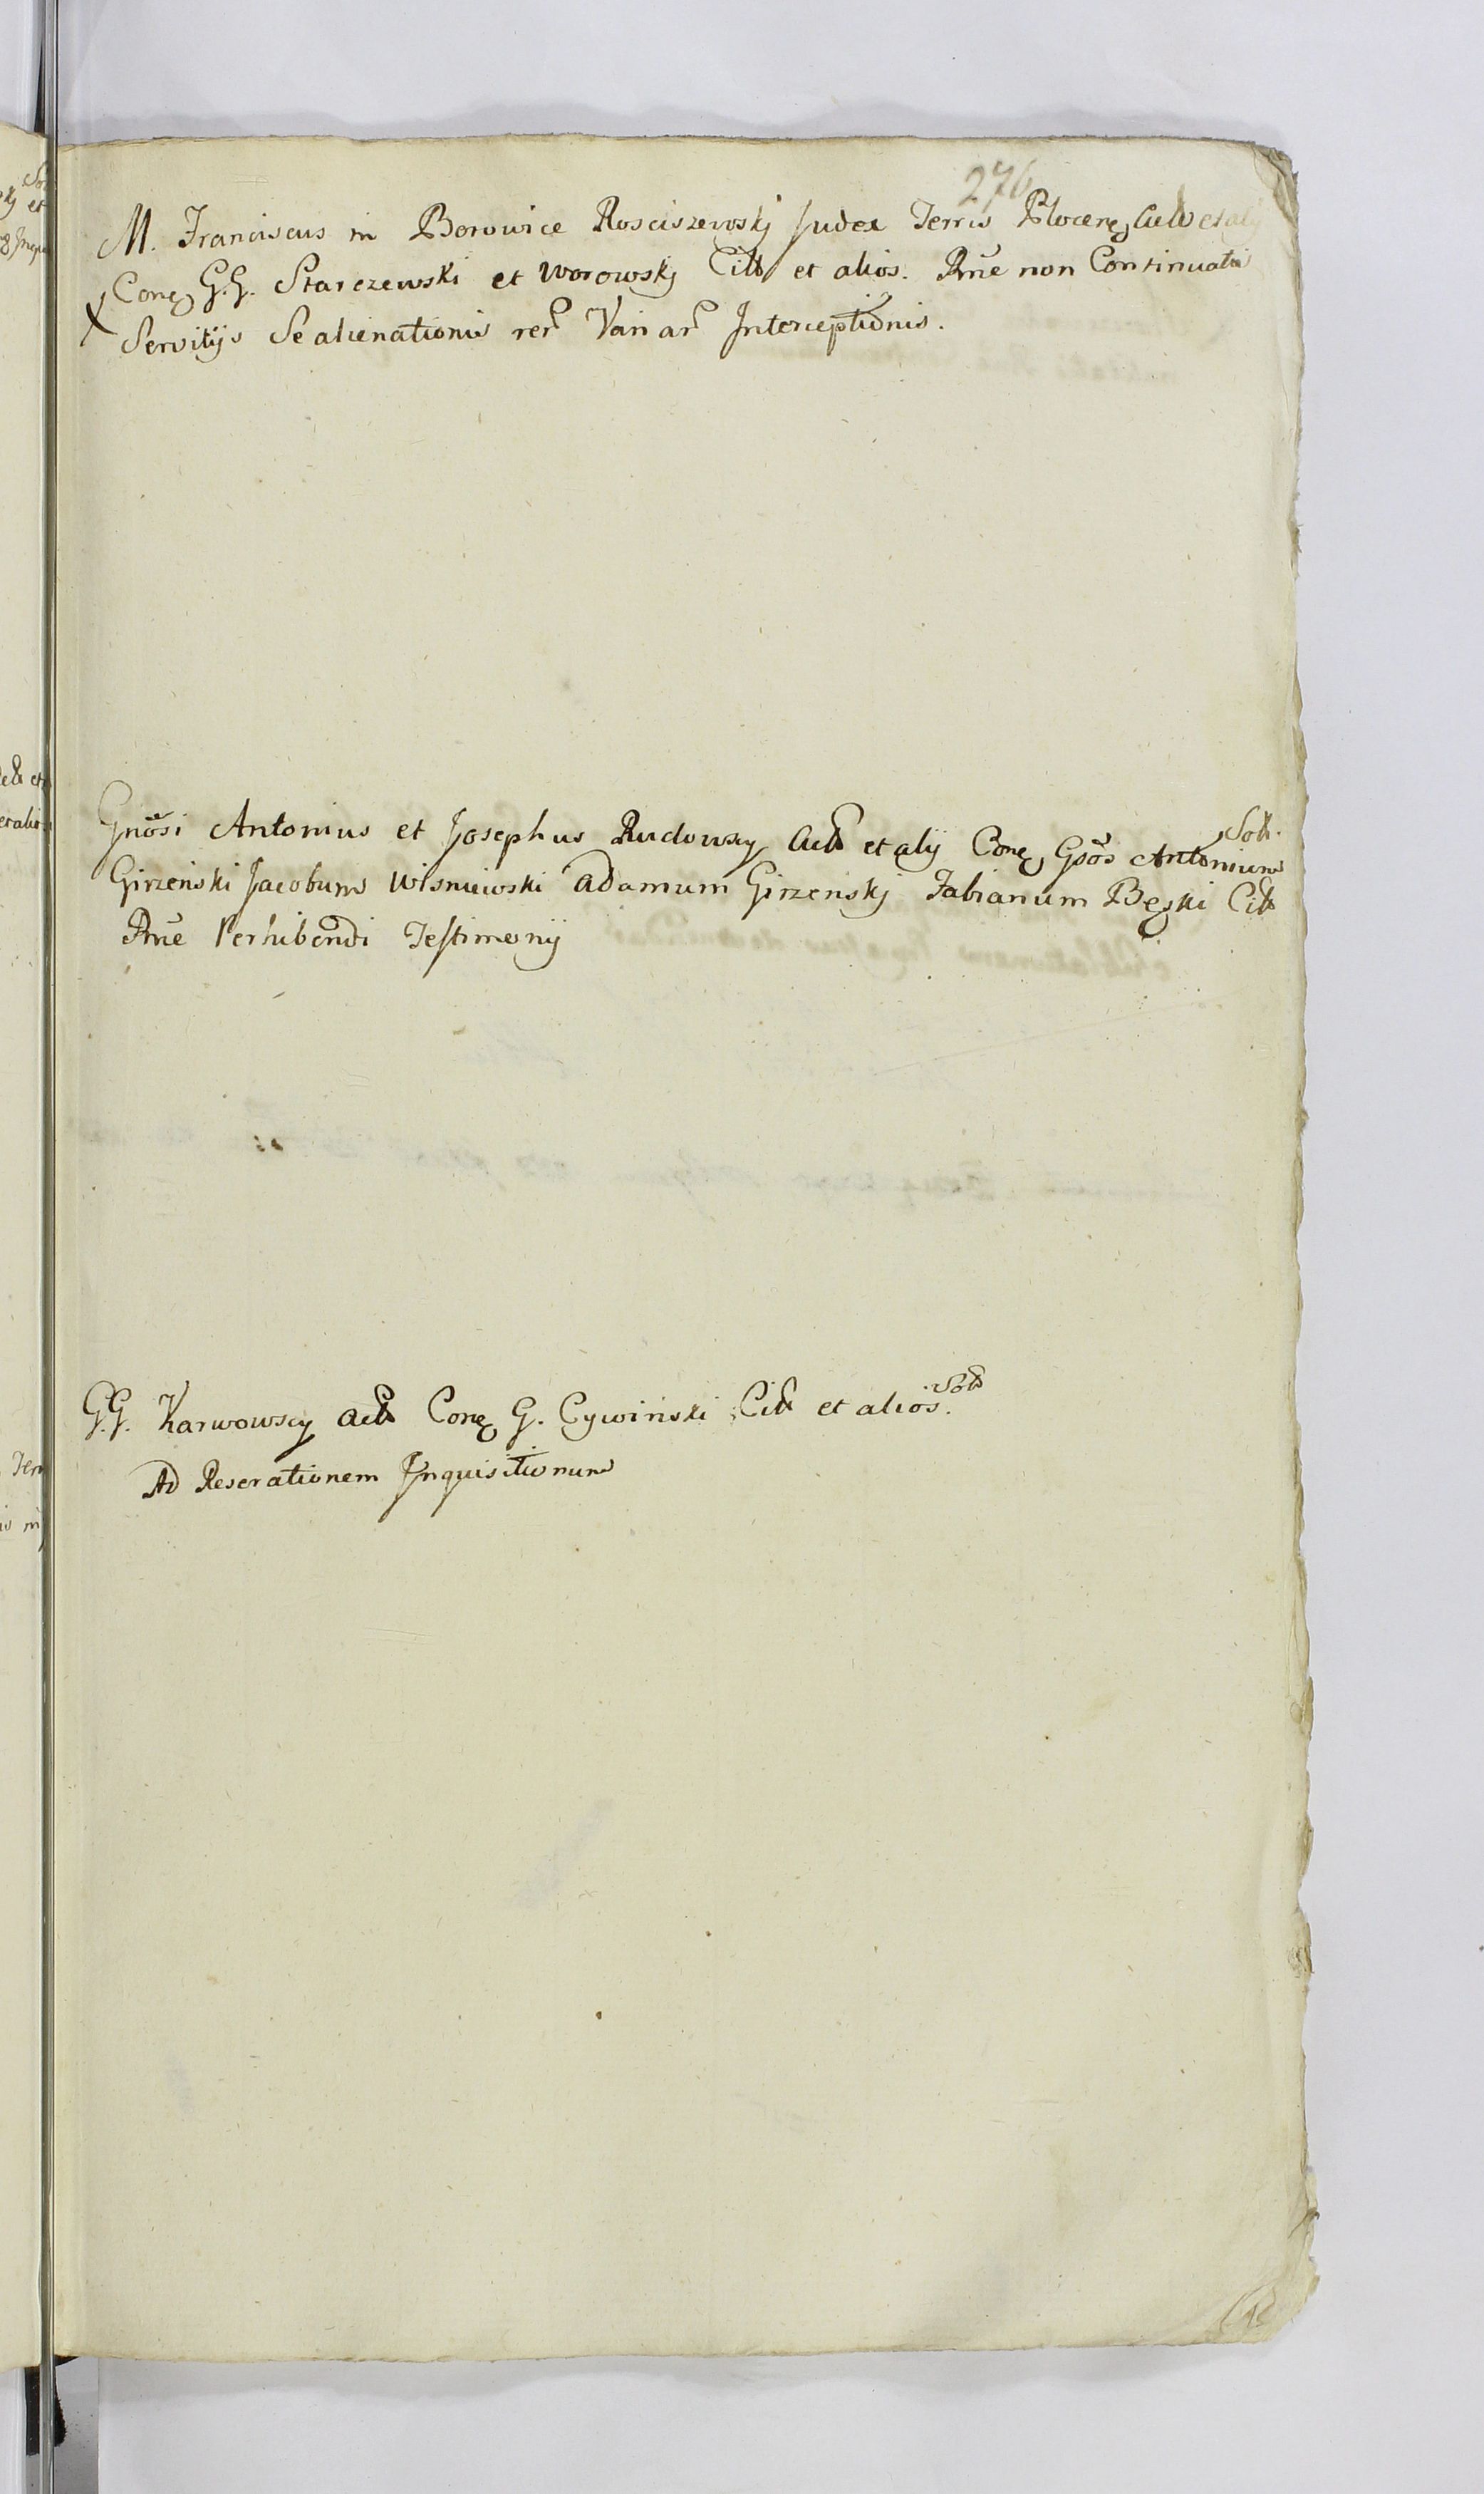 276
M. Franciscus in Borowice Rosciszewskj Judex Terris Plocenę Actt et alij
Conę G.G. Starczewski et Worowskj Citt et alios. Rne non Continuatis
Servitijs Se alienationis rer Variar Interceptionis.
Gnosi Antonius et Josephus Rudowscy Actt et alij Conę Gsos Antonium Sott.
Girzenski Jacobum Wisniewski Adamum Girzenskj Fabianum Bęski Citt
Rne Perhibendi Testimonij
G.G. Karwowscy Actt Conę G. Cywinski Citt et alios. Sott
Ad Reserationem Inquisitionum